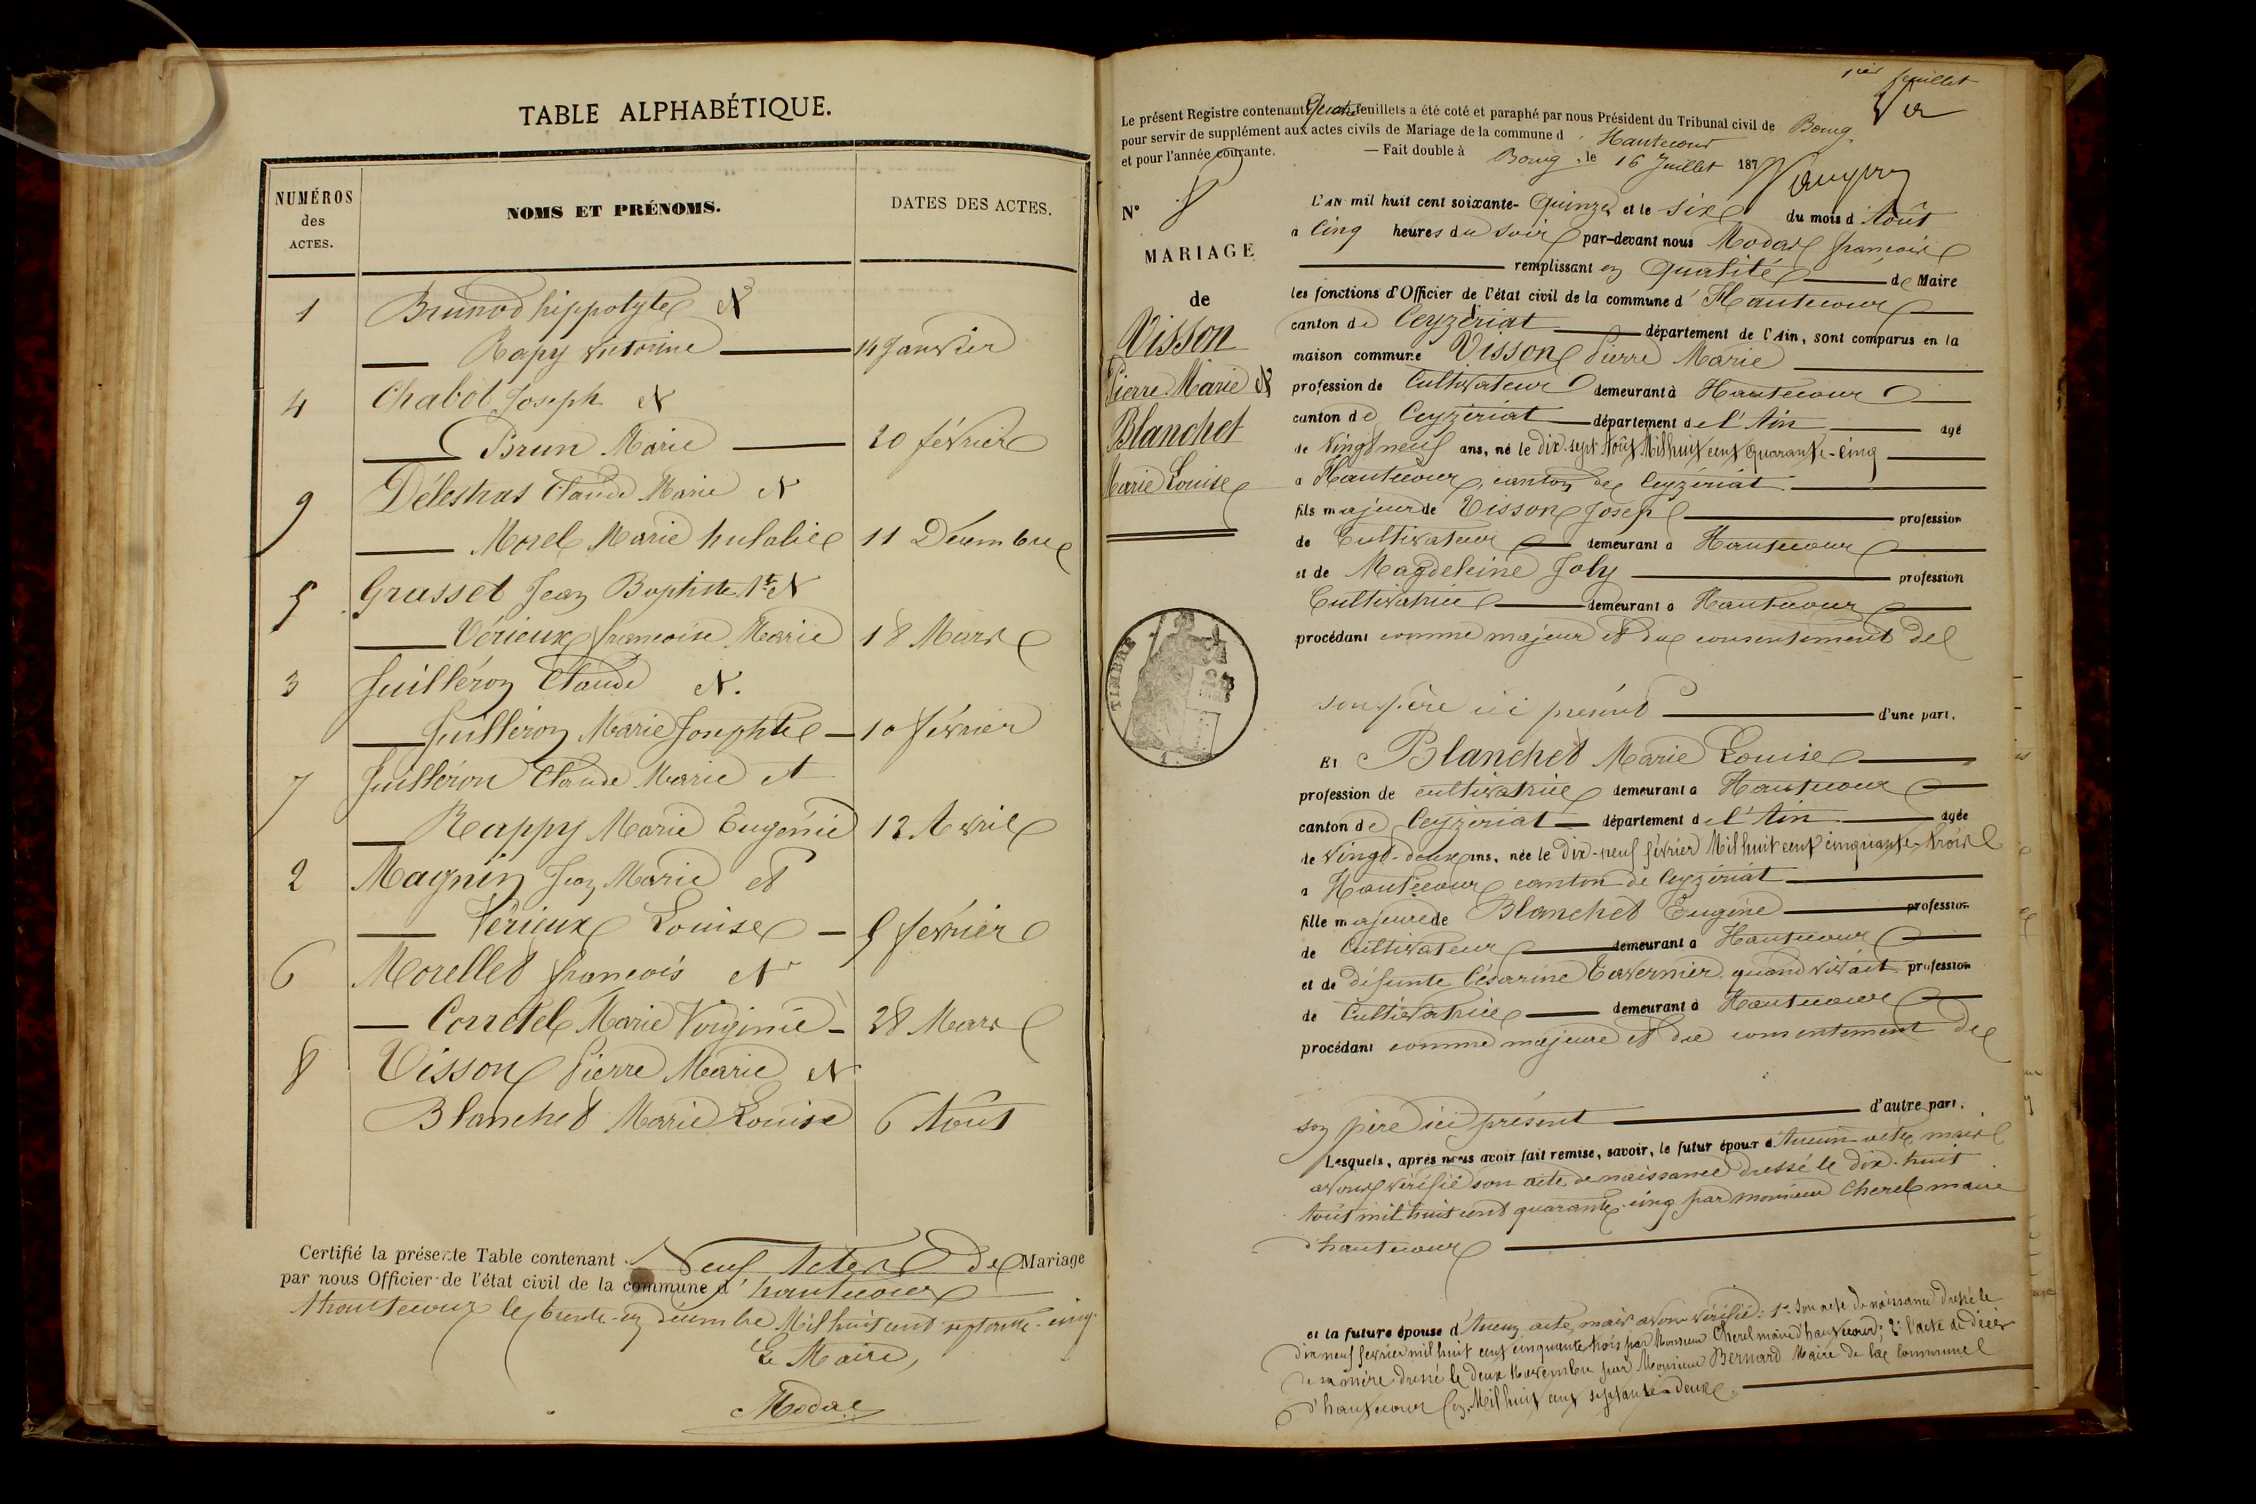 TABLE ALPHABÉTIQUE.
NUMÉROS des ACTES.
NOMS ET PRÉNOMS.
DATES DES ACTES.
1 Brunod hippolyte et
Rapy victorine 14 Janvier
4 Chabot Joseph et
Brun Marie 20 février
9 Délestras Claude Marie et
Morel Marie hulalie 11 Décembre
5 Grasset Jean Baptiste et
Vérieux françoise Marie 18 Mars
3 Juilléron Claude et.
Juilléron Marie Josephte 10 février
7 Juilléron Claude Marie et
Rappy Marie Eugénie 12 Avril
2 Magnin Jean Marie et
Vérieux Louise 5 février
6 Morellet françois et
Corretel Marie Virginie 28 Mars
8 Visson Pierre Marie et
Blanchet Marie Louise 6 Août
Certifié la présente Table contenant Neuf Actes de Mariage
par nous Officier de l'état civil de la commune d'hautecour
A hautecour le trente-un décembre Mil huit cent septante-cinq.
Le Maire,
Modas
1er feuillet
Le présent Registre contenant quatre feuillets a été coté et paraphé par nous Président du Tribunal civil de Bourg
pour servir de supplément aux actes civils de Mariage de la commune d'Hautecour
et pour l'année courante. — Fait double à Bourg, le 16 Juillet 187
N° 8
MARIAGE
de
Visson
Pierre Marie et
Blanchet
Marie Louise
TIMBRE
L'AN mil huit cent soixante-Quinze et le six du mois d'Août
a Cinq heures du soir par-devant nous Modas françois
remplissant en qualité de Maire
les fonctions d'Officier de l'état civil de la commune d'Hautecour
canton de Ceyzériat département de l'Ain, sont comparus en la
maison commune Visson Pierre Marie
profession de Cultivateur demeurant à Hautecour
canton de Ceyzériat département de l'Ain agé
de Vingt neuf ans, né le dix-sept Août Mil huit cent quarante-cinq
a Hautecour, canton de Ceyzériat
fils majeur de Visson Joseph profession
de Cultivateur demeurant a Hautecour
et de Magdeleine Joly profession
Cultivatrice demeurant a Hautecour
procédant comme majeur et du consentement de
son père ici présent d'une part.
Et Blanchet Marie Louise
profession de cultivatrice demeurant a Hautecour
canton de Ceyzériat département de l'Ain agée
de Vingt-deux ans, née le Dix-neuf février Mil huit cent cinquante-trois
a Hautecour canton de Ceyzériat
fille majeure de Blanchet Eugène profession
de Cultivateur demeurant a Hautecour
et de défunte Césarine Tavernier quand vivait profession
de Cultivatrice demeurant à Hautecour
procédant comme majeure et du consentement de
son père ici présent d'autre part.
Lesquels, après nous avoir fait remise, savoir, le futur époux d'Aucun acte mais
avons vérifié son acte de naissance dressé le dix-huit
Août mil huit cent quarante-cinq par monsieur Cherel maire
d'hautecour
et la future épouse d'Aucun acte, mais avons vérifié: 1° Son acte de naissance dressé le
dix neuf février mil huit cent cinquante trois par Monsieur Cherel maire d'hautecour; 2° l'acte de décès
de sa mère dressé le deux Novembre par Monsieur Bernard Maire de la Commune
d'hautecour en Mil huit cent septante-deux.